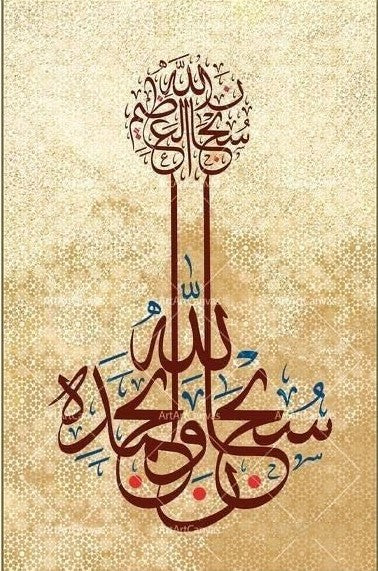 سبحان الله وبحمده
سبحان الله العظيم
ArtArtCanvas